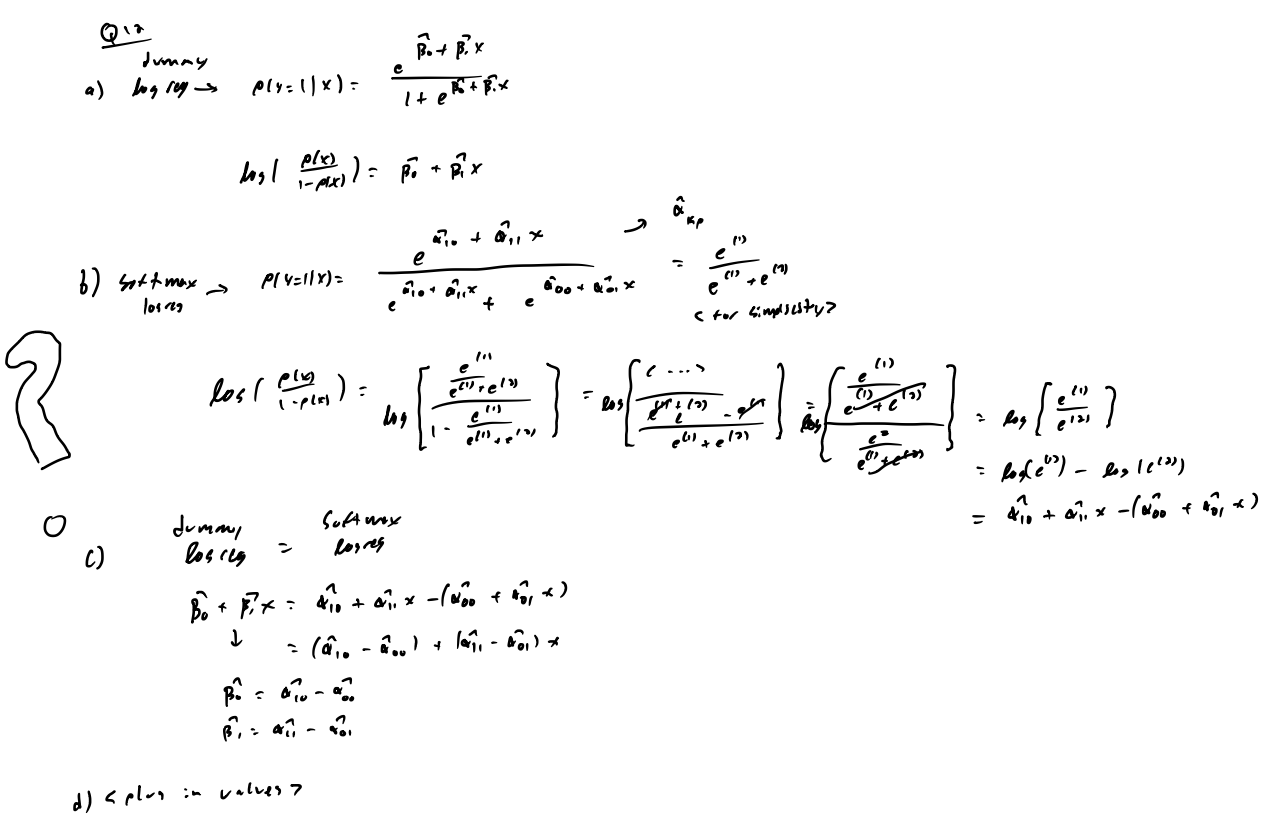 Q12
a) dummy log reg → p(y=1|x) = e^(β̂₀ + β̂₁x) / (1 + e^(β̂₀ + β̂₁x))
log( p(x) / (1-p(x)) ) = β̂₀ + β̂₁x
b) softmax log reg → p(y=1|x) = e^(α̂₁₀ + α̂₁₁x) / (e^(α̂₁₀ + α̂₁₁x) + e^(α̂₀₀ + α̂₀₁x)) → α̂_KP = e^(1) / (e^(1) + e^(2))
< for simplicity >
? log( p(x) / (1-p(x)) ) = log[ (e^(1) / (e^(1) + e^(2))) / (1 - e^(1) / (e^(1) + e^(2))) ] = log[ (...) / ((e^(1) + e^(2) - e^(1)) / (e^(1) + e^(2))) ] = log[ (e^(1) / (e^(1) + e^(2))) / (e^2 / (e^(1) + e^(2))) ] = log[ e^(1) / e^(2) ]
= log(e^(1)) - log(e^(2))
= α̂₁₀ + α̂₁₁x - (α̂₀₀ + α̂₀₁x)
c) dummy log reg = softmax log reg
β̂₀ + β̂₁x = α̂₁₀ + α̂₁₁x - (α̂₀₀ + α̂₀₁x)
↓ = (α̂₁₀ - α̂₀₀) + (α̂₁₁ - α̂₀₁)x
β̂₀ = α̂₁₀ - α̂₀₀
β̂₁ = α̂₁₁ - α̂₀₁
d) < plug in values >